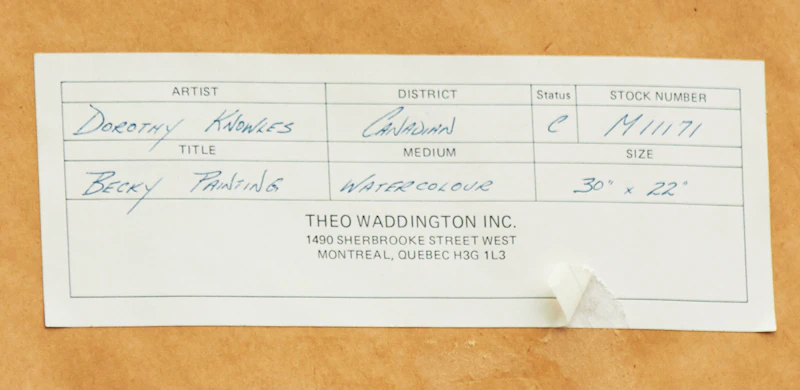 ARTIST DISTRICT Status STOCK NUMBER
DOROTHY KNOWLES CANADIAN C M11171
TITLE MEDIUM SIZE
BECKY PAINTING WATERCOLOUR 30" x 22"
THEO WADDINGTON INC.
1490 SHERBROOKE STREET WEST
MONTREAL, QUEBEC H3G 1L3